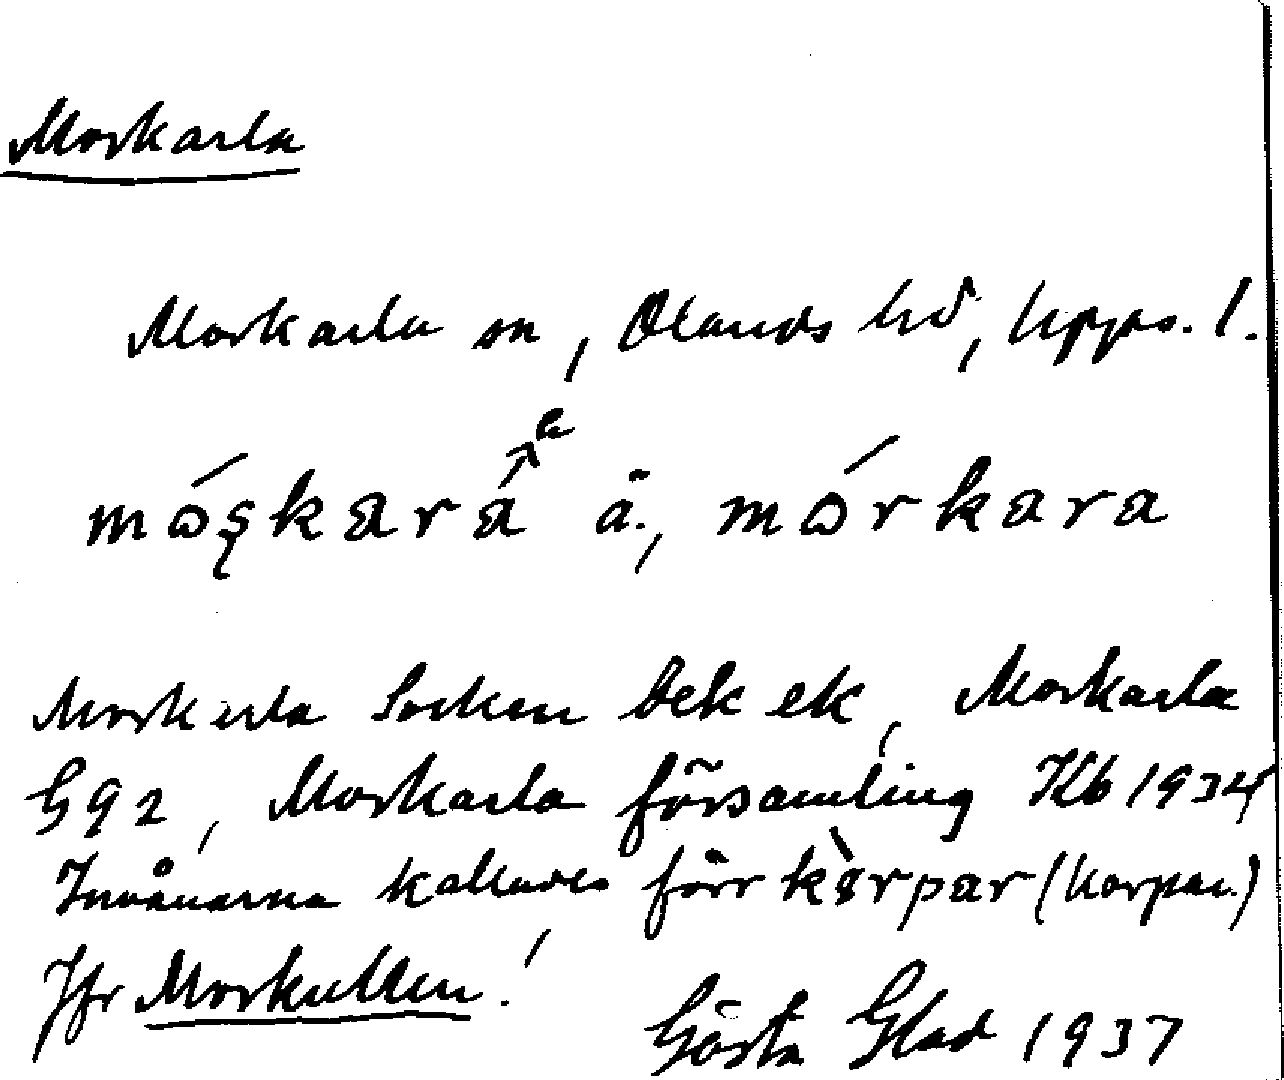 Morkarla
Morkarla sn, Olands hd, Upps. l.
móşkará a ä., mórkara
Morkarla Socken Dek ek, Morkarla
G92, Morkarla församling Kb 1934
Invånarna kallades förr kòrpar (korpar.)
Jfr Morkullen!
Gösta Glad 1937